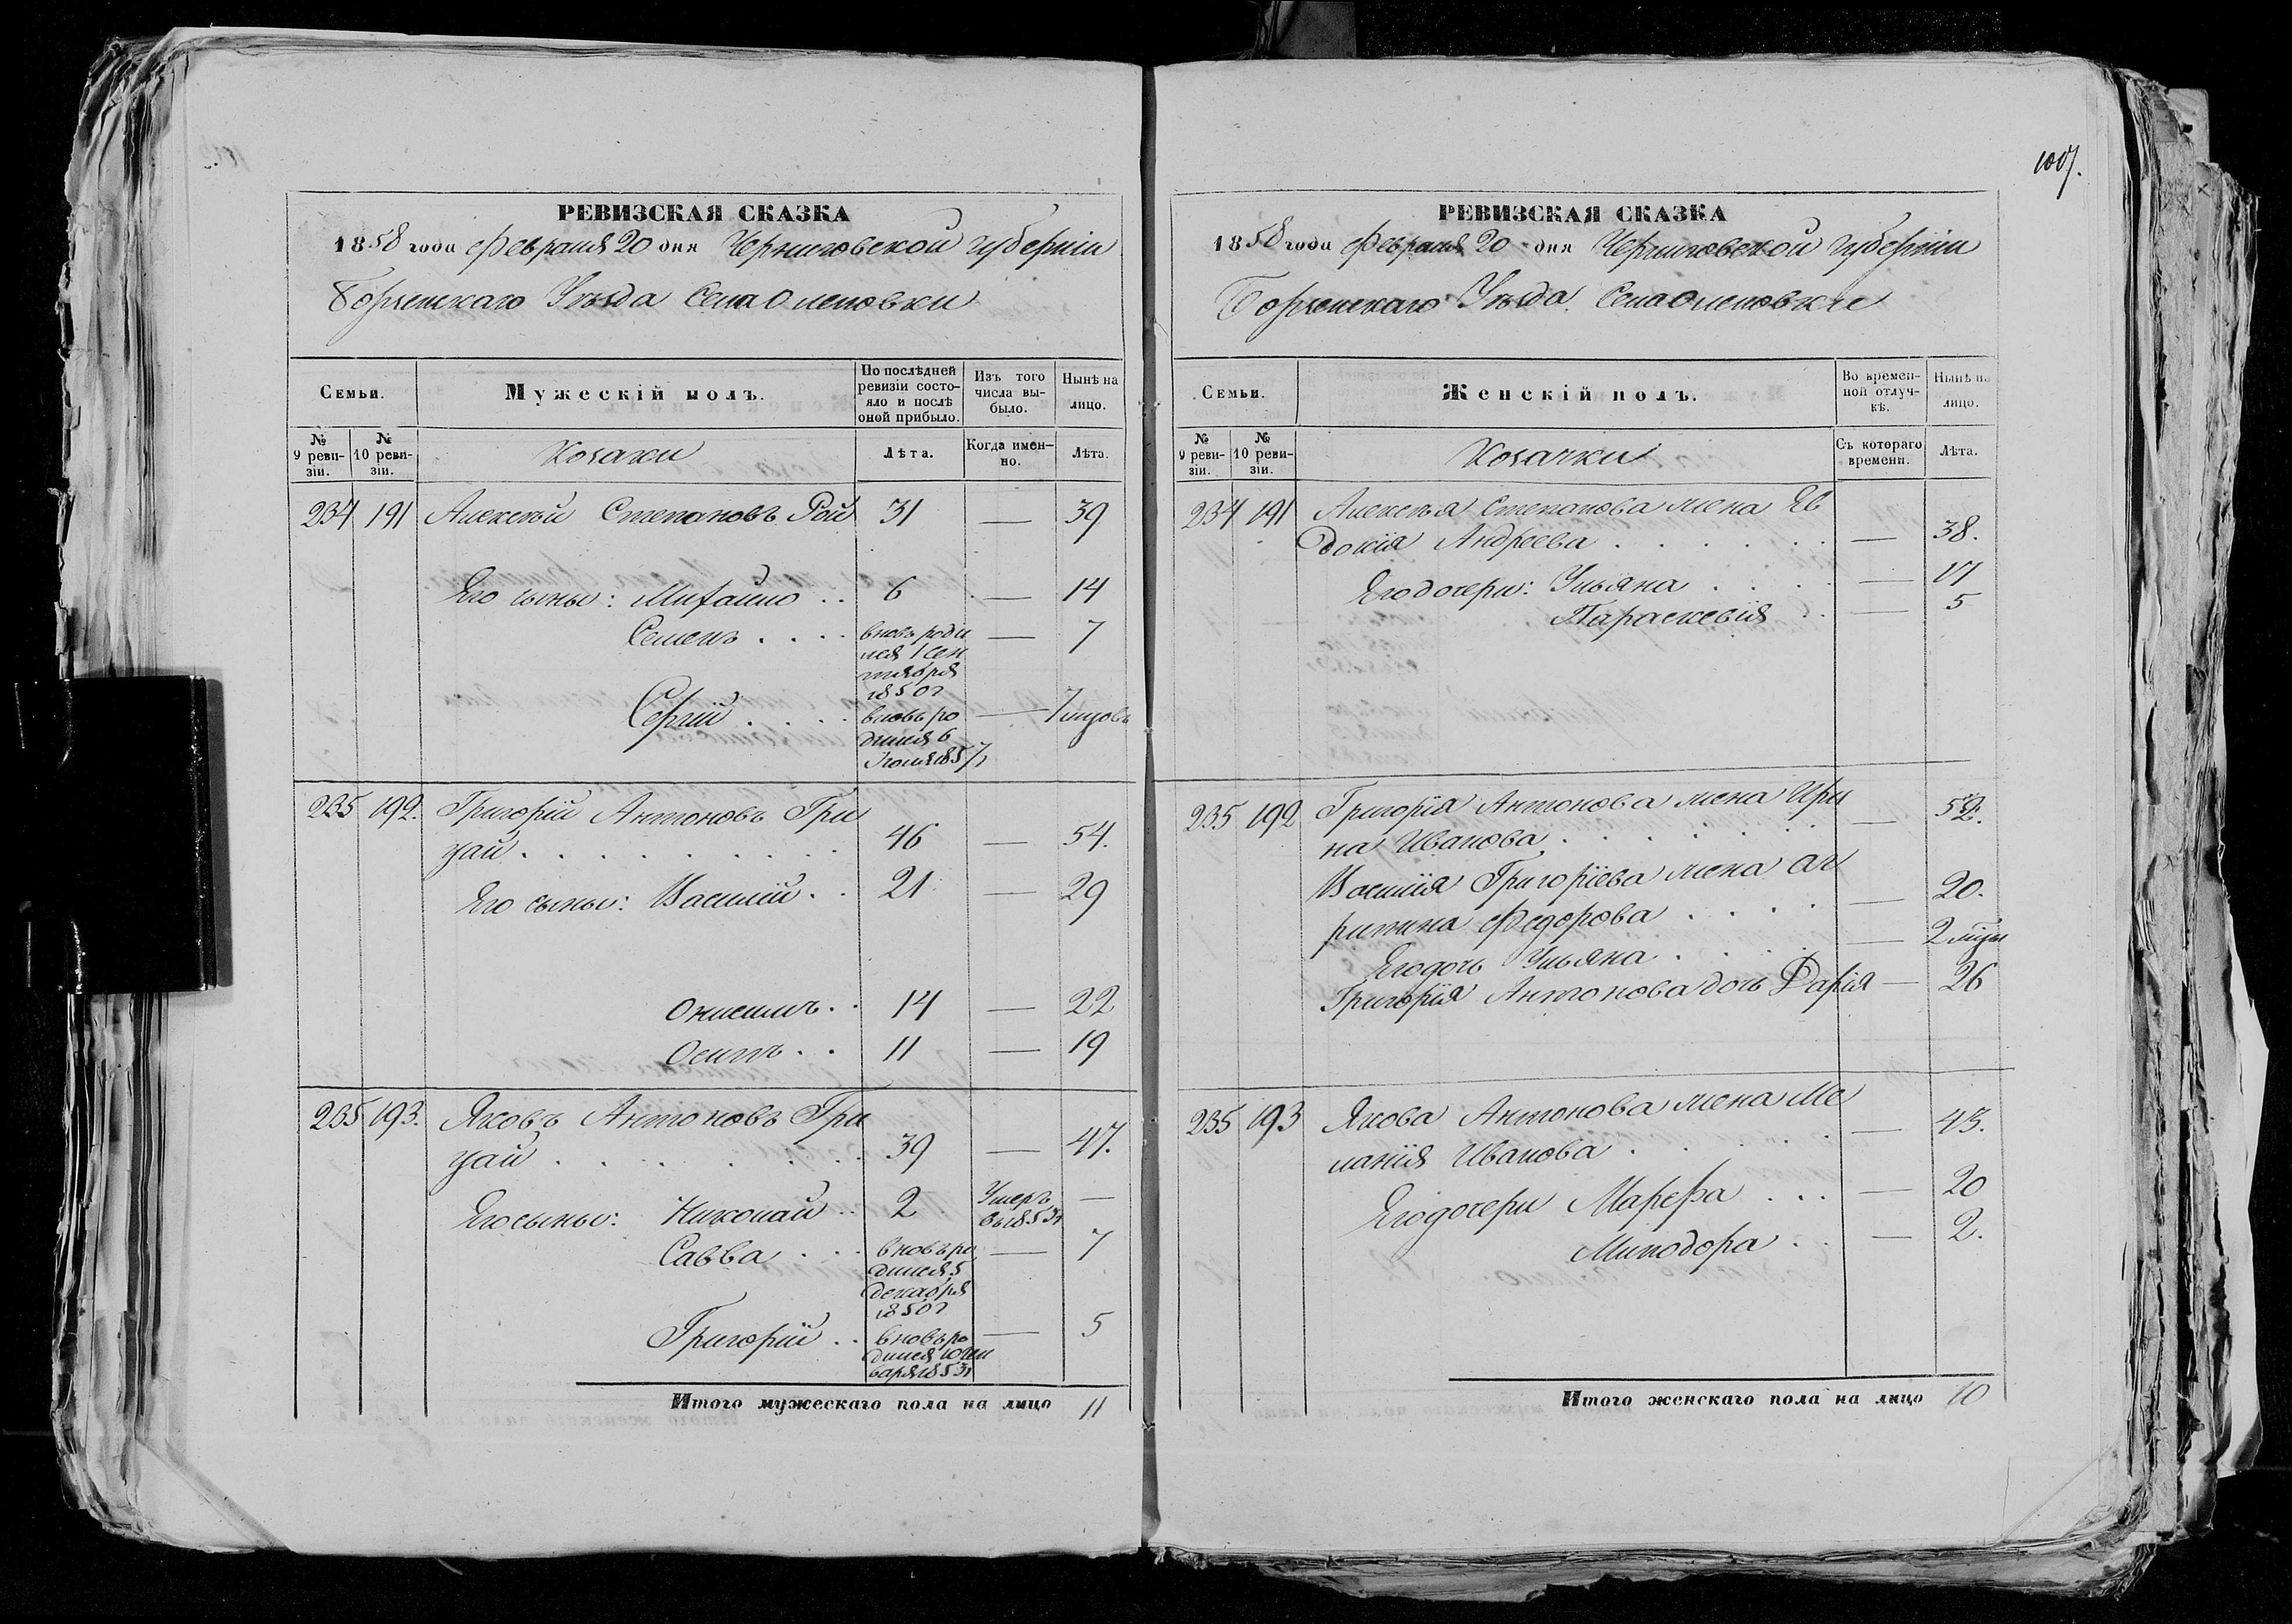 РЕВИЗСКАЯ СКАЗКА
1858 года Февраля 20 дня Черниговской губерніи
Борзенскаго Уѣзда Села Оленовки
Семьи. Мужескій полъ. По послѣдней ревизіи состояло и послѣ оной прибыло. Изъ того числа выбыло. Нынѣ на лицо.
№ 9 ревизіи. № 10 ревизіи. Козаки Лѣта. Когда именно. Лѣта.
234 191 Алексѣй Степановъ Рой 31 — 39
Его сыны: Михайло . . 6 — 14
Семенъ . . . . вновь роди — 7
лся 1 сен
тября
1850 г
Сергій . . . . вновь ро — 7 мцовъ
дился 6
Іюля 1857 г
235 192. Григорій Антоновъ Гри
цай . . . . . . . . . 46 — 54.
Его сыны: Василій . . 21 — 29
Онисимъ . . 14 — 22
Осипъ . . 11 — 19
235 193. Яковъ Антоновъ Гри
цай . . . . . . . . 39 — 47.
Его сыны: Николай . . 2 Умеръ —
въ 1853 г
Савва . . . вновь ро — 7
дился 5
декабря
1850 г
Григорій . . вновь ро — 5
дился 10 Ген
варя 1853 г
Итого мужескаго пола на лицо 11
1007.
РЕВИЗСКАЯ СКАЗКА
1858 года Февраля 20 дня Черниговской губерніи
Борзенскаго Уѣзда Села Оленовки
Семьи. Женскій полъ. Во временной отлучкѣ. Нынѣ на лицо.
№ 9 ревизіи. № 10 ревизіи. Козачки Съ котораго времени. Лѣта.
234 191 Алексѣя Степанова жена Ев
докія Андреева . . . . . . — 38.
Его дочери: Ульяна . . . . — 17
Параскевія . . — 5
235 192 Григорія Антонова жена Ири
на Иванова . . . . . . . — 52.
Василія Григоріева жена
Федорова . . . . — 20.
Его дочь Ульяна . . . . — 2 мцы
Григорія Антонова дочь Дарія — 26
235 193 Якова Антонова жена Ме
ланія Иванова . . . . . — 43.
Его дочери Марефа . . . — 20
Минодора . . — 2.
Итого женскаго пола на лицо 10